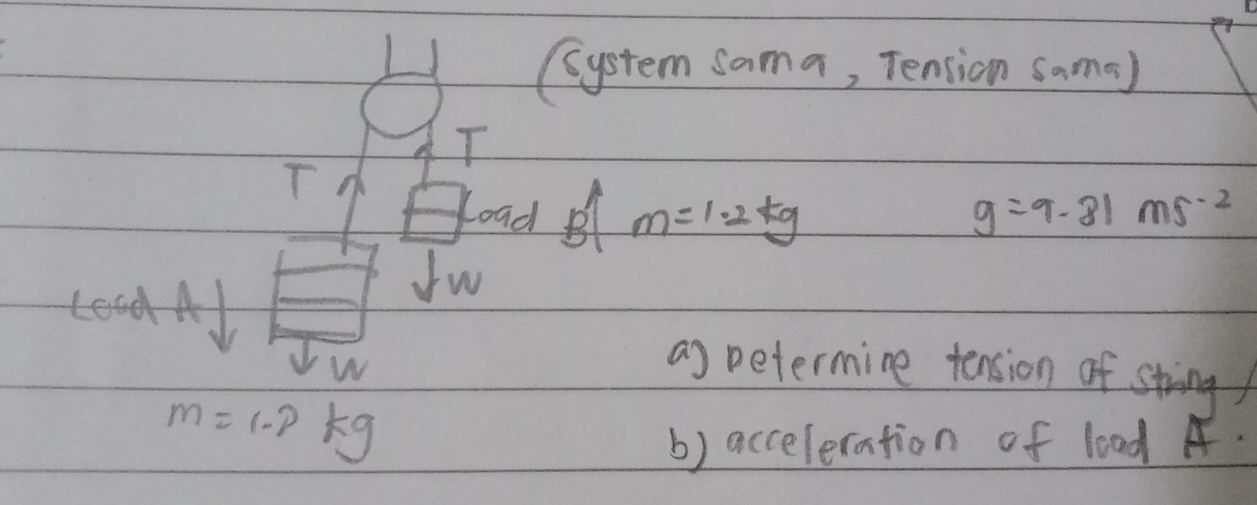 (System sama, Tension sama)
T
T
Load B m=1.2 kg g=9.81 ms-2
W
Load A
W
a) Determine tension of string
m= kg
b) acceleration of load A.